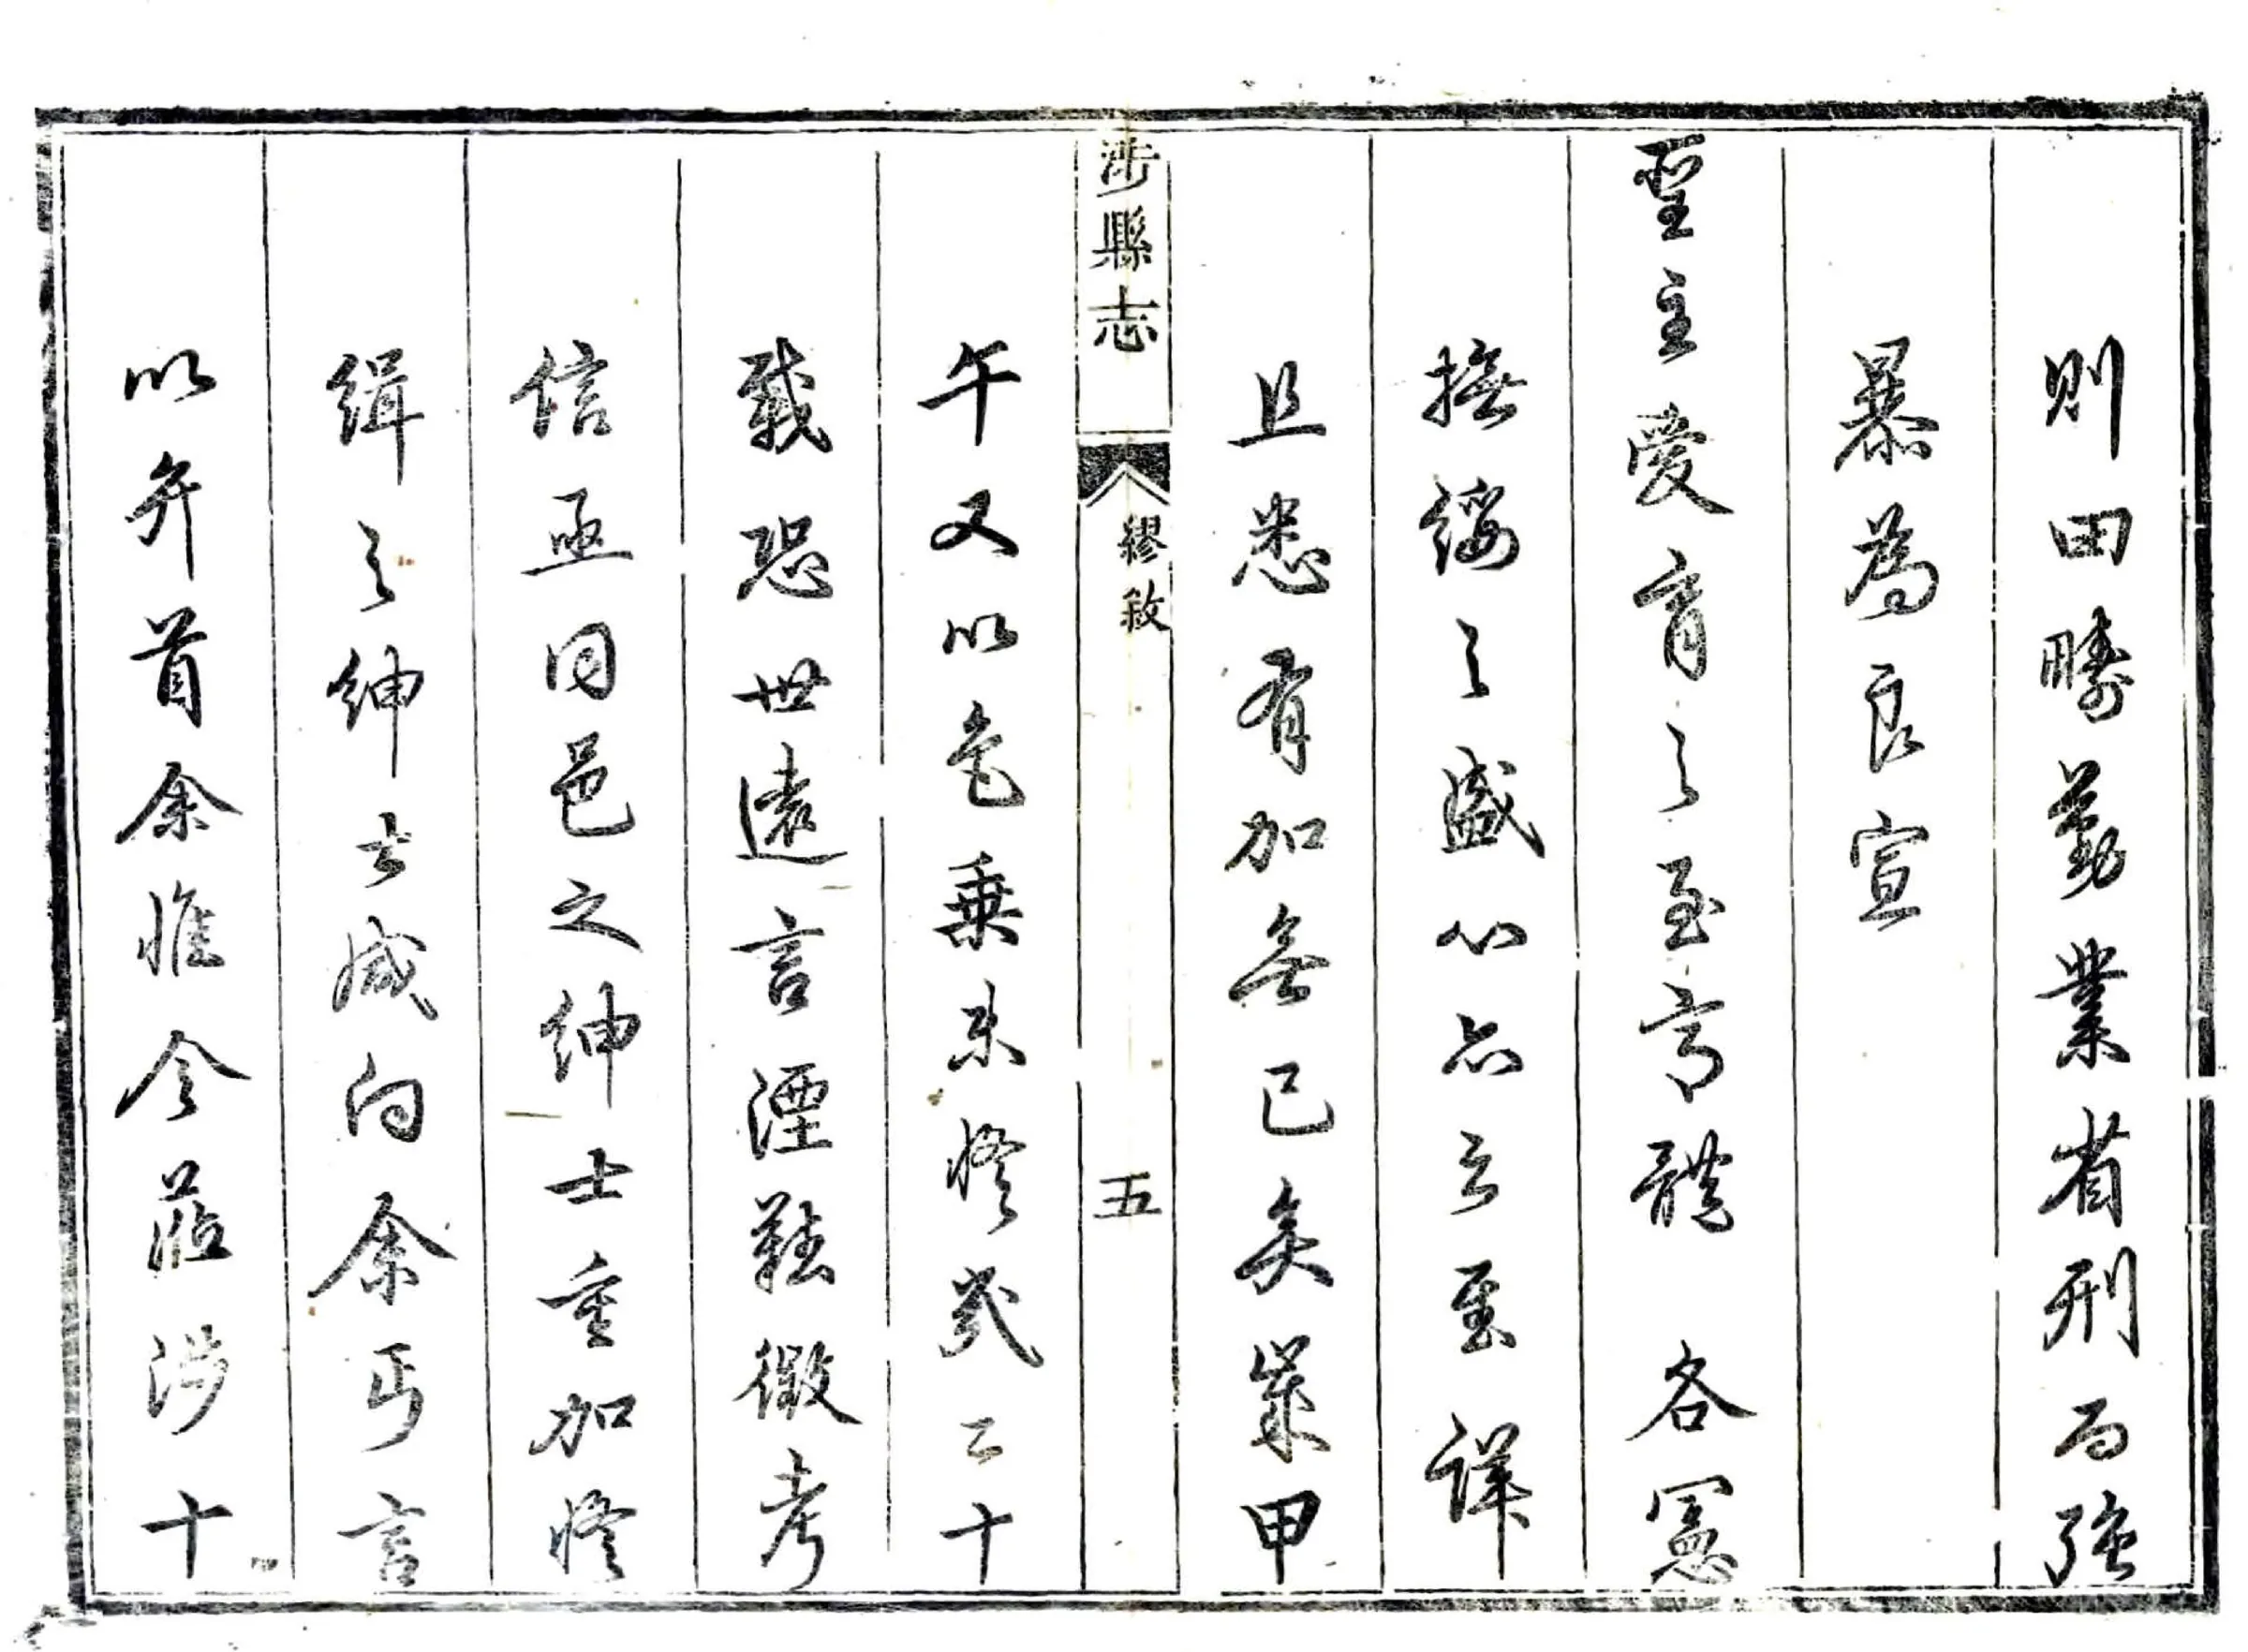 則田疇勤業省刑而強
暴為良宣
聖主愛育之至意體各憲
撫綏之盛心亦云至詳
且悉有加無已矣歲甲
涉縣志
繆敘
五
午又以邑乘未修幾二十
載恐世遠言湮難徵考
信亟同邑之紳士重加修
緝之紳士咸向余丐言
以弁首余惟令蒞涉十